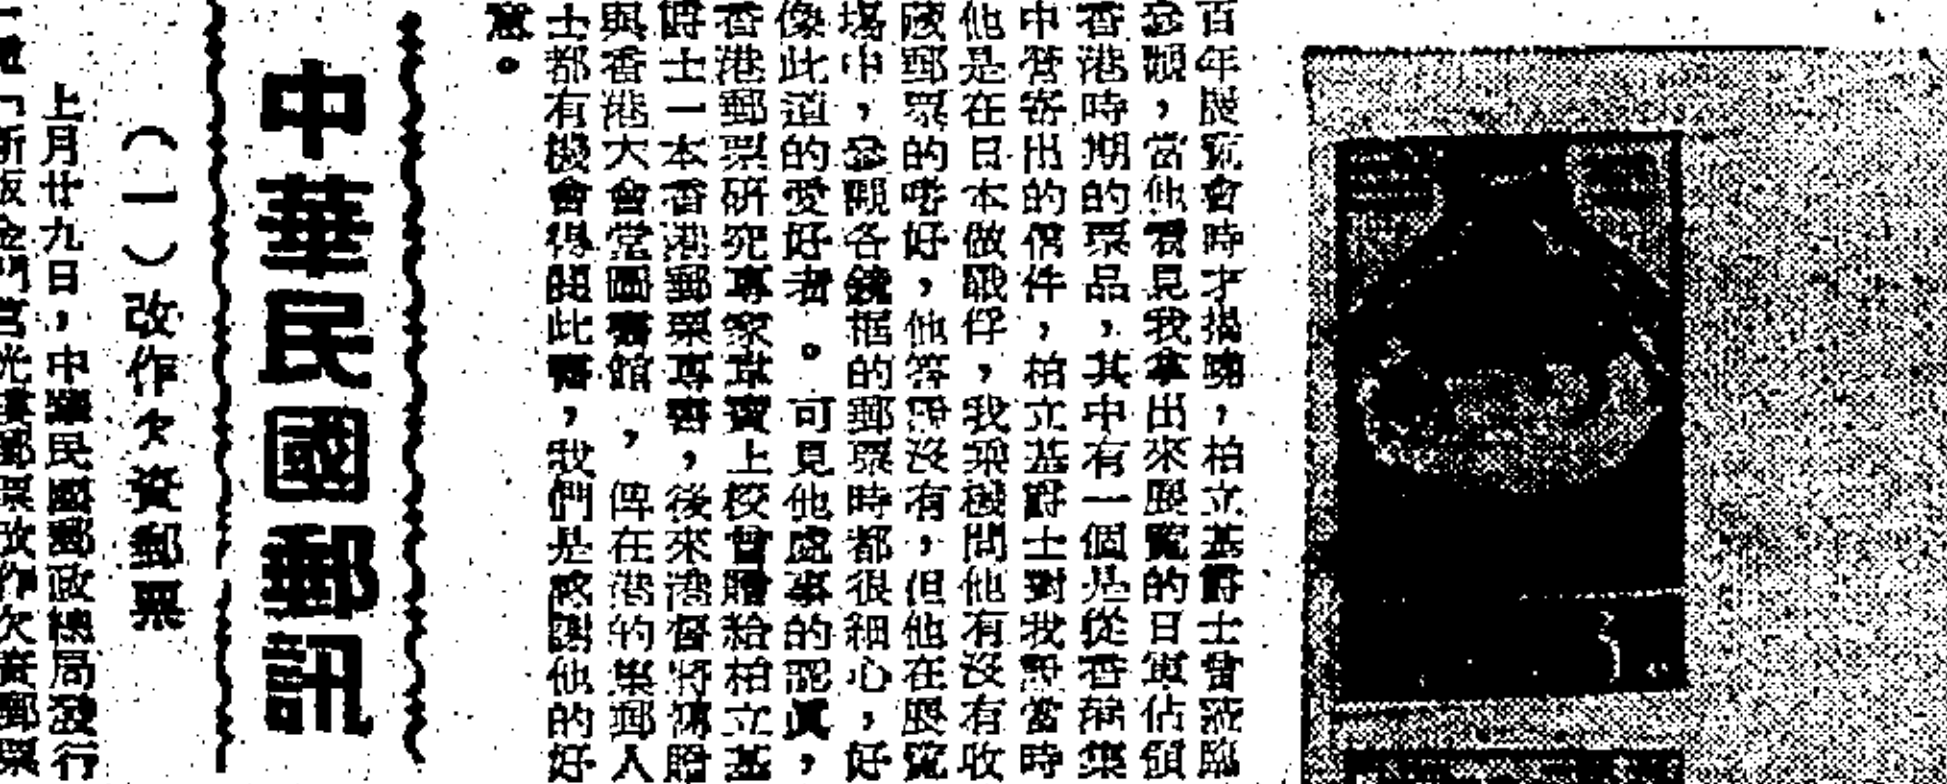 百年展覽會時才揭曉，柏立基爵士曾蒞臨
參觀，當他看見我拿出來展覽的日軍佔領
香港時期的票品，其中有一個是從香港集
中營寄出的信件，柏立基爵士對我說當時
他是在日本做戰俘，我乘機問他有沒有收
藏郵票的嗜好，他答說沒有，但他在展覽
場中，參觀各鏡框的郵票時都很細心，好
像此道的愛好者。可見他處事的認眞，
香港郵票研究專家韋寶上校曾贈給柏立基
爵士一本香港郵票專書，後來港督將轉贈
與香港大會堂圖書館，俾在港的集郵人
士都有機會得閱此書，我們是感謝他的好
意。
中華民國郵訊
（一）改作欠資郵票
上月廿九日，中華民國郵政總局發行
「新版金門莒光樓郵票改作欠資郵票